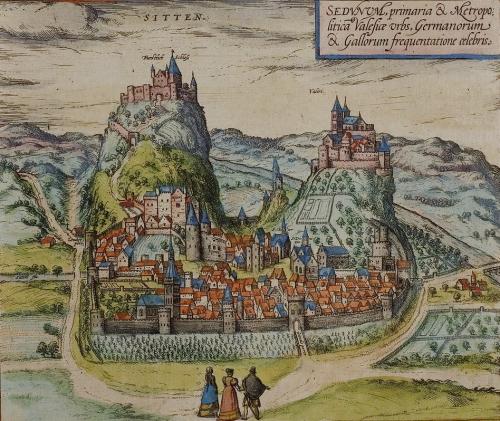 SITTEN.
SEDVNVM, primaria & Metropo,
litica Valesiæ vrbs, Germanorum
& Gallorum frequentatione celebris.
Valeri